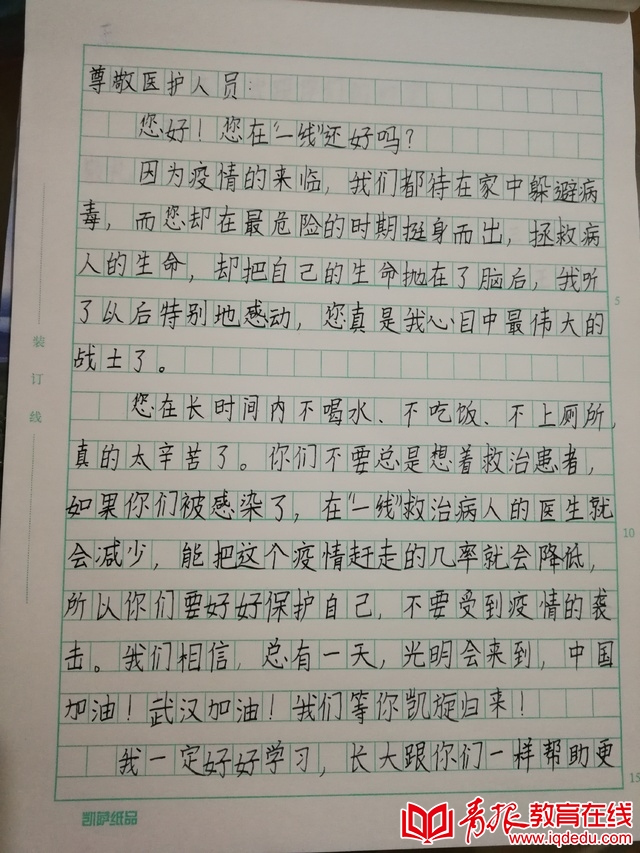 尊敬医护人员：
您好！您在“一线”还好吗？
因为疫情的来临，我们都待在家中躲避病
毒，而您却在最危险的时期挺身而出，拯救病
人的生命，却把自己的生命抛在了脑后，我听
了以后特别地感动，您真是我心目中最伟大的
战士了。
您在长时间内不喝水、不吃饭、不上厕所，
真的太辛苦了。你们不要总是想着救治患者，
如果你们被感染了，在“一线”救治病人的医生就
会减少，能把这个疫情赶走的几率就会降低，
所以你们要好好保护自己，不要受到疫情的袭
击。我们相信，总有一天，光明会来到，中国
加油！武汉加油！我们等你凯旋归来！
我一定好好学习，长大跟你们一样帮助更
装订线
5
10
15
凯萨纸品
青报教育在线
www.iqdedu.com